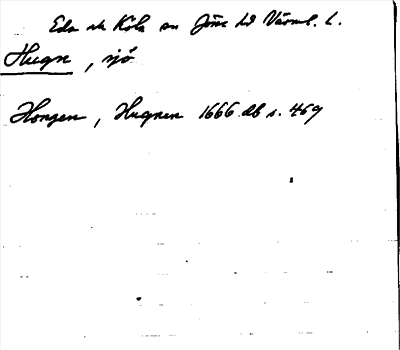 Eda o Köla sn Jösse hd Värml. l.
Hugn, sjö
Hongen, Hugnen 1666 db s. 469